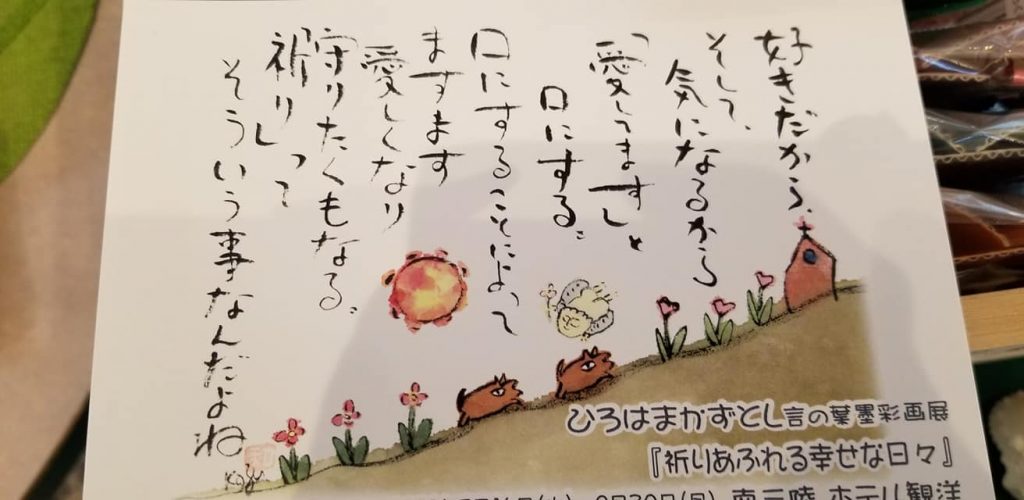 好きだから、
そして、
気になるから
「愛してます」と
口にする。
口にすることによって
ますます
愛しくなり
守りたくもなる。
「祈り」って
そういう事なんだよね
ひろはまかずとし言の葉墨彩画展
『祈りあふれる幸せな日々』
9月30日(月) 南三陸 ホテル観洋